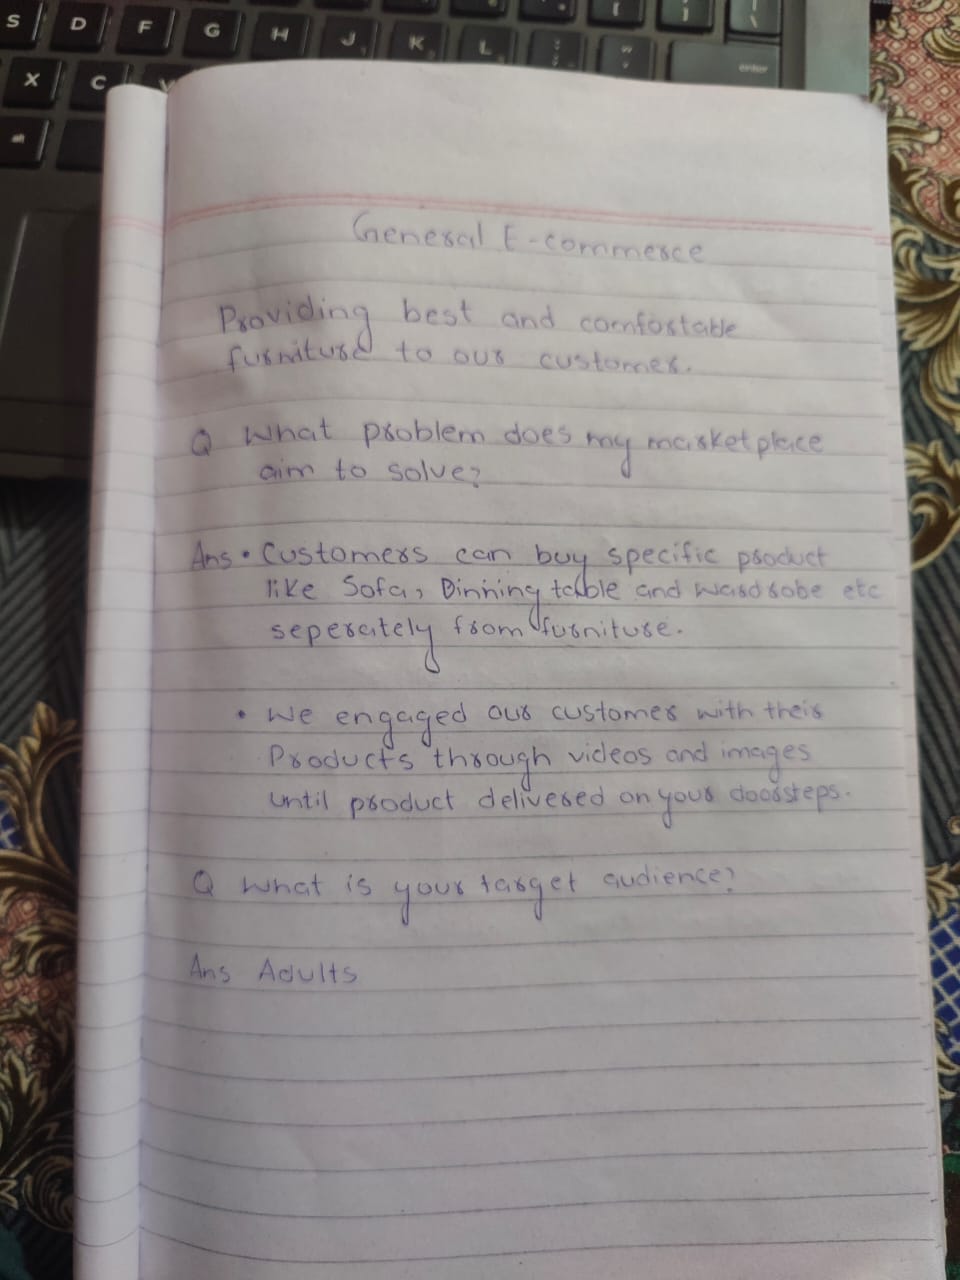 S D F G H J K L
enter
X C
alt
General E-commerce
Providing best and comfortable
furniture to our customer.
Q What problem does my marketplace
aim to solve?
Ans • Customers can buy specific product
like Sofa, Dinning table and wardrobe etc
seperately from furniture.
• We engaged our customer with their
Products through videos and images
until product delivered on your doorsteps.
Q What is your target audience?
Ans Adults